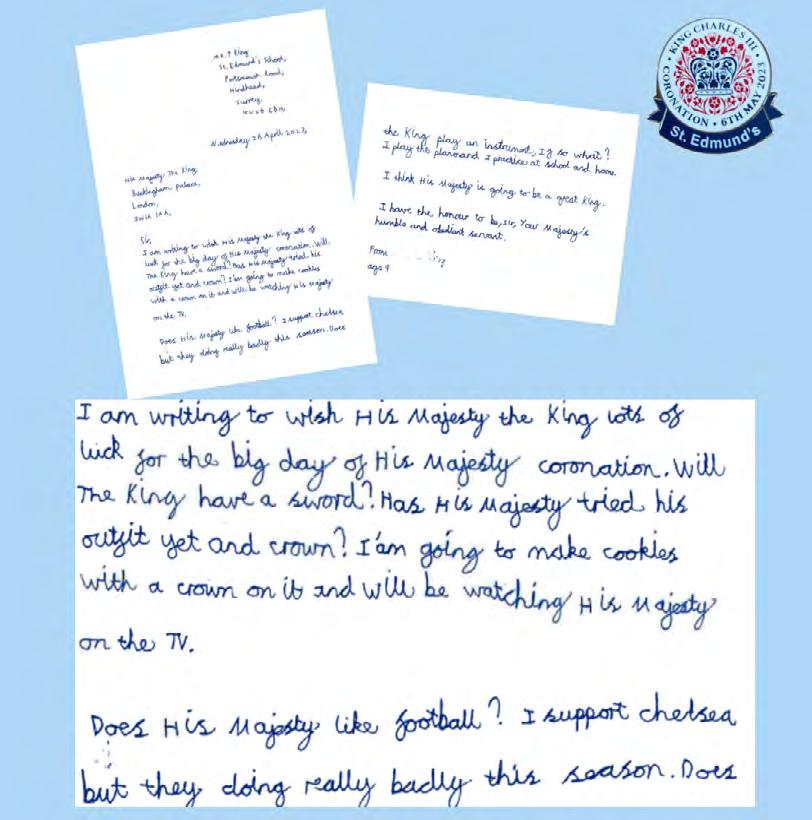 Mr. T King,
St. Edmund's School,
Portsmouth Road,
Hindhead,
Surrey,
GU26 6BH,
Wednesday 26 April 2023,
His Majesty The King,
Buckingham Palace,
London,
SW1A 1AA,
Sir,
I am writing to wish His Majesty the King lots of
luck for the big day of His Majesty coronation. Will
The King have a sword? Has His Majesty tried his
outfit yet and crown? I'am going to make cookies
with a crown on it and will be watching His Majesty
on the TV.
Does His Majesty like football? I support chelsea
but they doing really badly this season. Does
the King play an instrument, If so what?
I play the piano and I practice at school and home.
I think His Majesty is going to be a great King.
I have the honour to be, Sir, Your Majesty's
humble and obedient servant.
From
age 9
KING CHARLES III • CORONATION • 6TH MAY 2023
St. Edmund's
I am writing to wish His Majesty the King lots of
luck for the big day of His Majesty coronation. Will
The King have a sword? Has His Majesty tried his
outfit yet and crown? I'am going to make cookies
with a crown on it and will be watching His Majesty
on the TV.
Does His Majesty like football? I support chelsea
but they doing really badly this season. Does